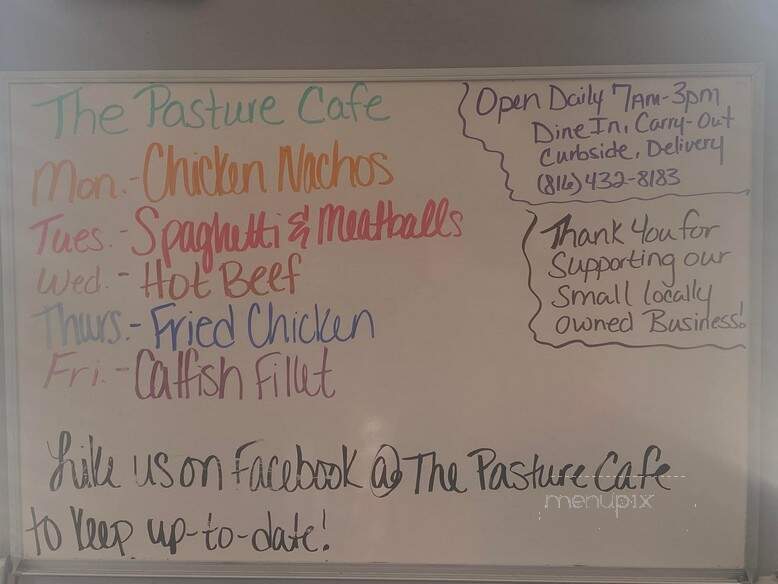 The Pasture Cafe
Mon.-Chicken Nachos
Tues.-Spaghetti & Meatballs
Wed.-Hot Beef
Thurs.-Fried Chicken
Fri.-Catfish Fillet
Open Daily 7AM-3pm
Dine In, Carry-Out
Curbside, Delivery
(816)432-8183
Thank You for
Supporting our
Small locally
owned Business!
Like us on Facebook @ The Pasture Cafe
to keep up-to-date!
menupix